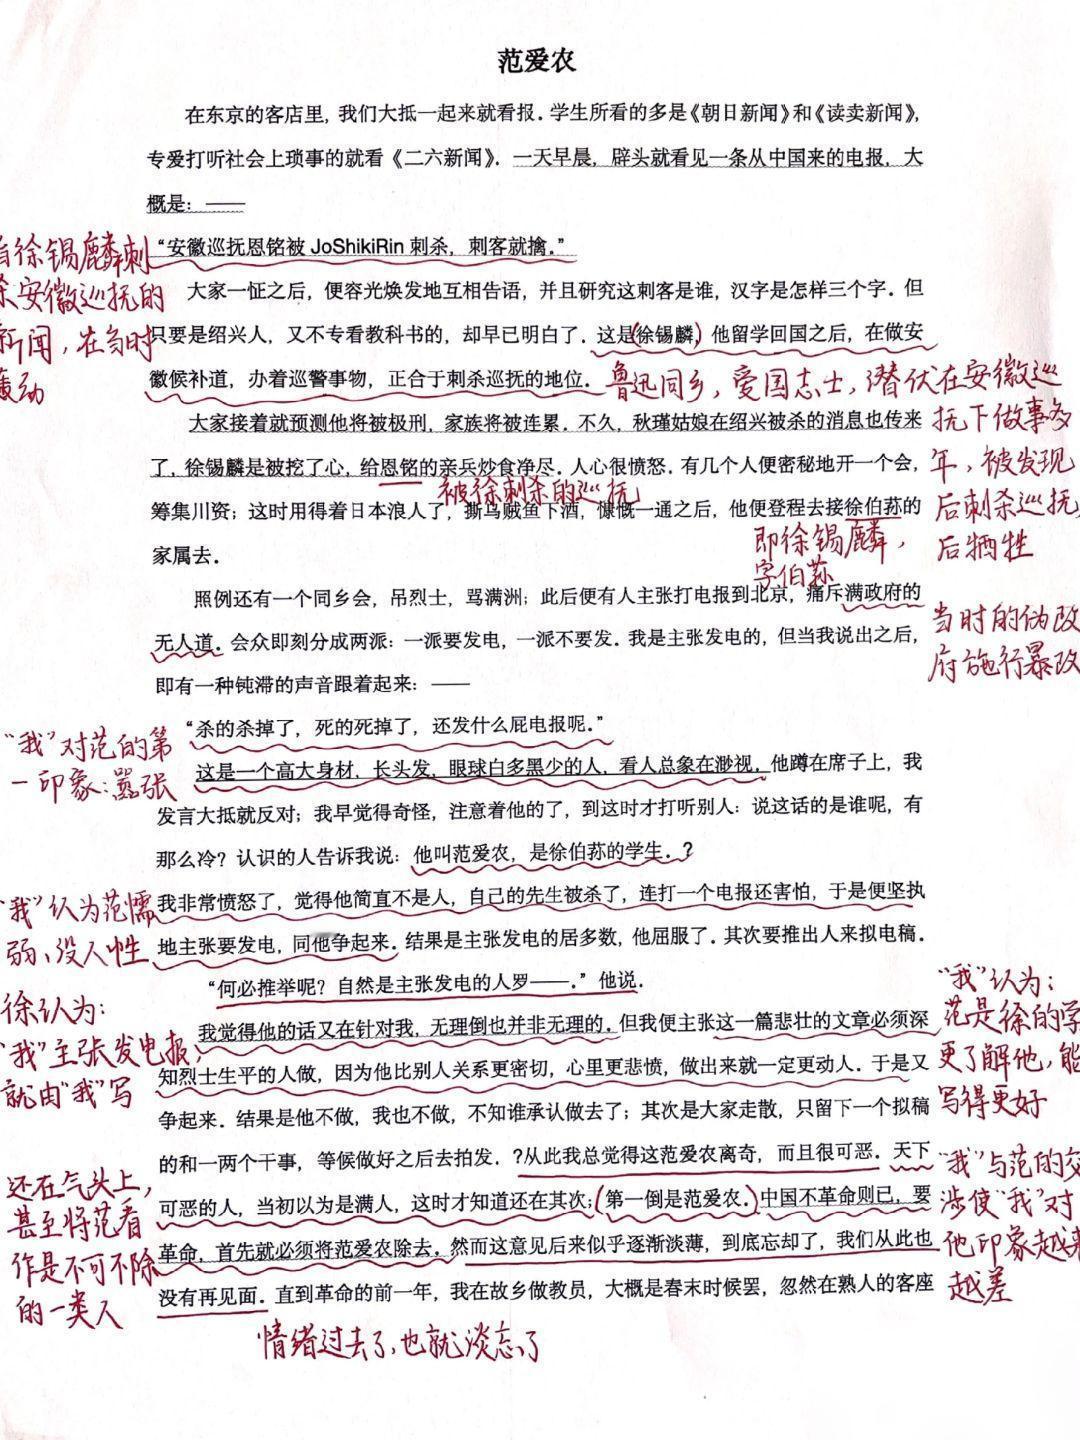 范爱农
在东京的客店里，我们大抵一起来就看报．学生所看的多是《朝日新闻》和《读卖新闻》，
专爱打听社会上琐事的就看《二六新闻》．一天早晨，辟头就看见一条从中国来的电报，大
概是：——
“安徽巡抚恩铭被 JoShikiRin 刺杀，刺客就擒．”
徐锡麟刺
安徽巡抚的
新闻，在当时
轰动
大家一怔之后，便容光焕发地互相告语，并且研究这刺客是谁，汉字是怎样三个字．但
只要是绍兴人，又不专看教科书的，却早已明白了．这是(徐锡麟，)他留学回国之后，在做安
徽候补道，办着巡警事物，正合于刺杀巡抚的地位．
鲁迅同乡，爱国志士，潜伏在安徽巡
抚下做事多
年，被发现
后刺杀巡抚，
后牺牲
大家接着就预测他将被极刑，家族将被连累．不久，秋瑾姑娘在绍兴被杀的消息也传来
了，徐锡麟是被挖了心，给恩铭的亲兵炒食净尽．人心很愤怒．有几个人便密秘地开一个会，
被徐刺杀的巡抚
筹集川资；这时用得着日本浪人了，撕乌贼鱼下酒，慷慨一通之后，他便登程去接徐伯荪的
家属去．
即徐锡麟，
字伯荪
照例还有一个同乡会，吊烈士，骂满洲；此后便有人主张打电报到北京，痛斥满政府的
无人道．会众即刻分成两派：一派要发电，一派不要发．我是主张发电的，但当我说出之后，
即有一种钝滞的声音跟着起来：——
当时的伪政
府施行暴政
“杀的杀掉了，死的死掉了，还发什么屁电报呢．”
“我”对范的第
一印象：嚣张
这是一个高大身材，长头发，眼球白多黑少的人，看人总象在渺视．他蹲在席子上，我
发言大抵就反对；我早觉得奇怪，注意着他的了，到这时才打听别人：说这话的是谁呢，有
那么冷？认识的人告诉我说：他叫范爱农，是徐伯荪的学生．?
我非常愤怒了，觉得他简直不是人，自己的先生被杀了，连打一个电报还害怕，于是便坚执
地主张要发电，同他争起来．结果是主张发电的居多数，他屈服了．其次要推出人来拟电稿．
“我”认为范懦
弱、没人性
“何必推举呢？自然是主张发电的人罗——．”他说．
徐认为：
“我”主张发电报，
就由“我”写
我觉得他的话又在针对我，无理倒也并非无理的．但我便主张这一篇悲壮的文章必须深
知烈士生平的人做，因为他比别人关系更密切，心里更悲愤，做出来就一定更动人．于是又
争起来．结果是他不做，我也不做，不知谁承认做去了；其次是大家走散，只留下一个拟稿
的和一两个干事，等候做好之后去拍发．?从此我总觉得这范爱农离奇，而且很可恶．天下
可恶的人，当初以为是满人，这时才知道还在其次；(第一倒是范爱农．)中国不革命则已，要
革命，首先就必须将范爱农除去．然而这意见后来似乎逐渐淡薄，到底忘却了，我们从此也
没有再见面．直到革命的前一年，我在故乡做教员，大概是春末时候罢，忽然在熟人的客座
“我”认为：
范是徐的学
更了解他，能
写得更好
“我”与范的交
涉使“我”对
他印象越来
越差
还在气头上，
甚至将范看
作是不可不除
的一类人
情绪过去了，也就淡忘了